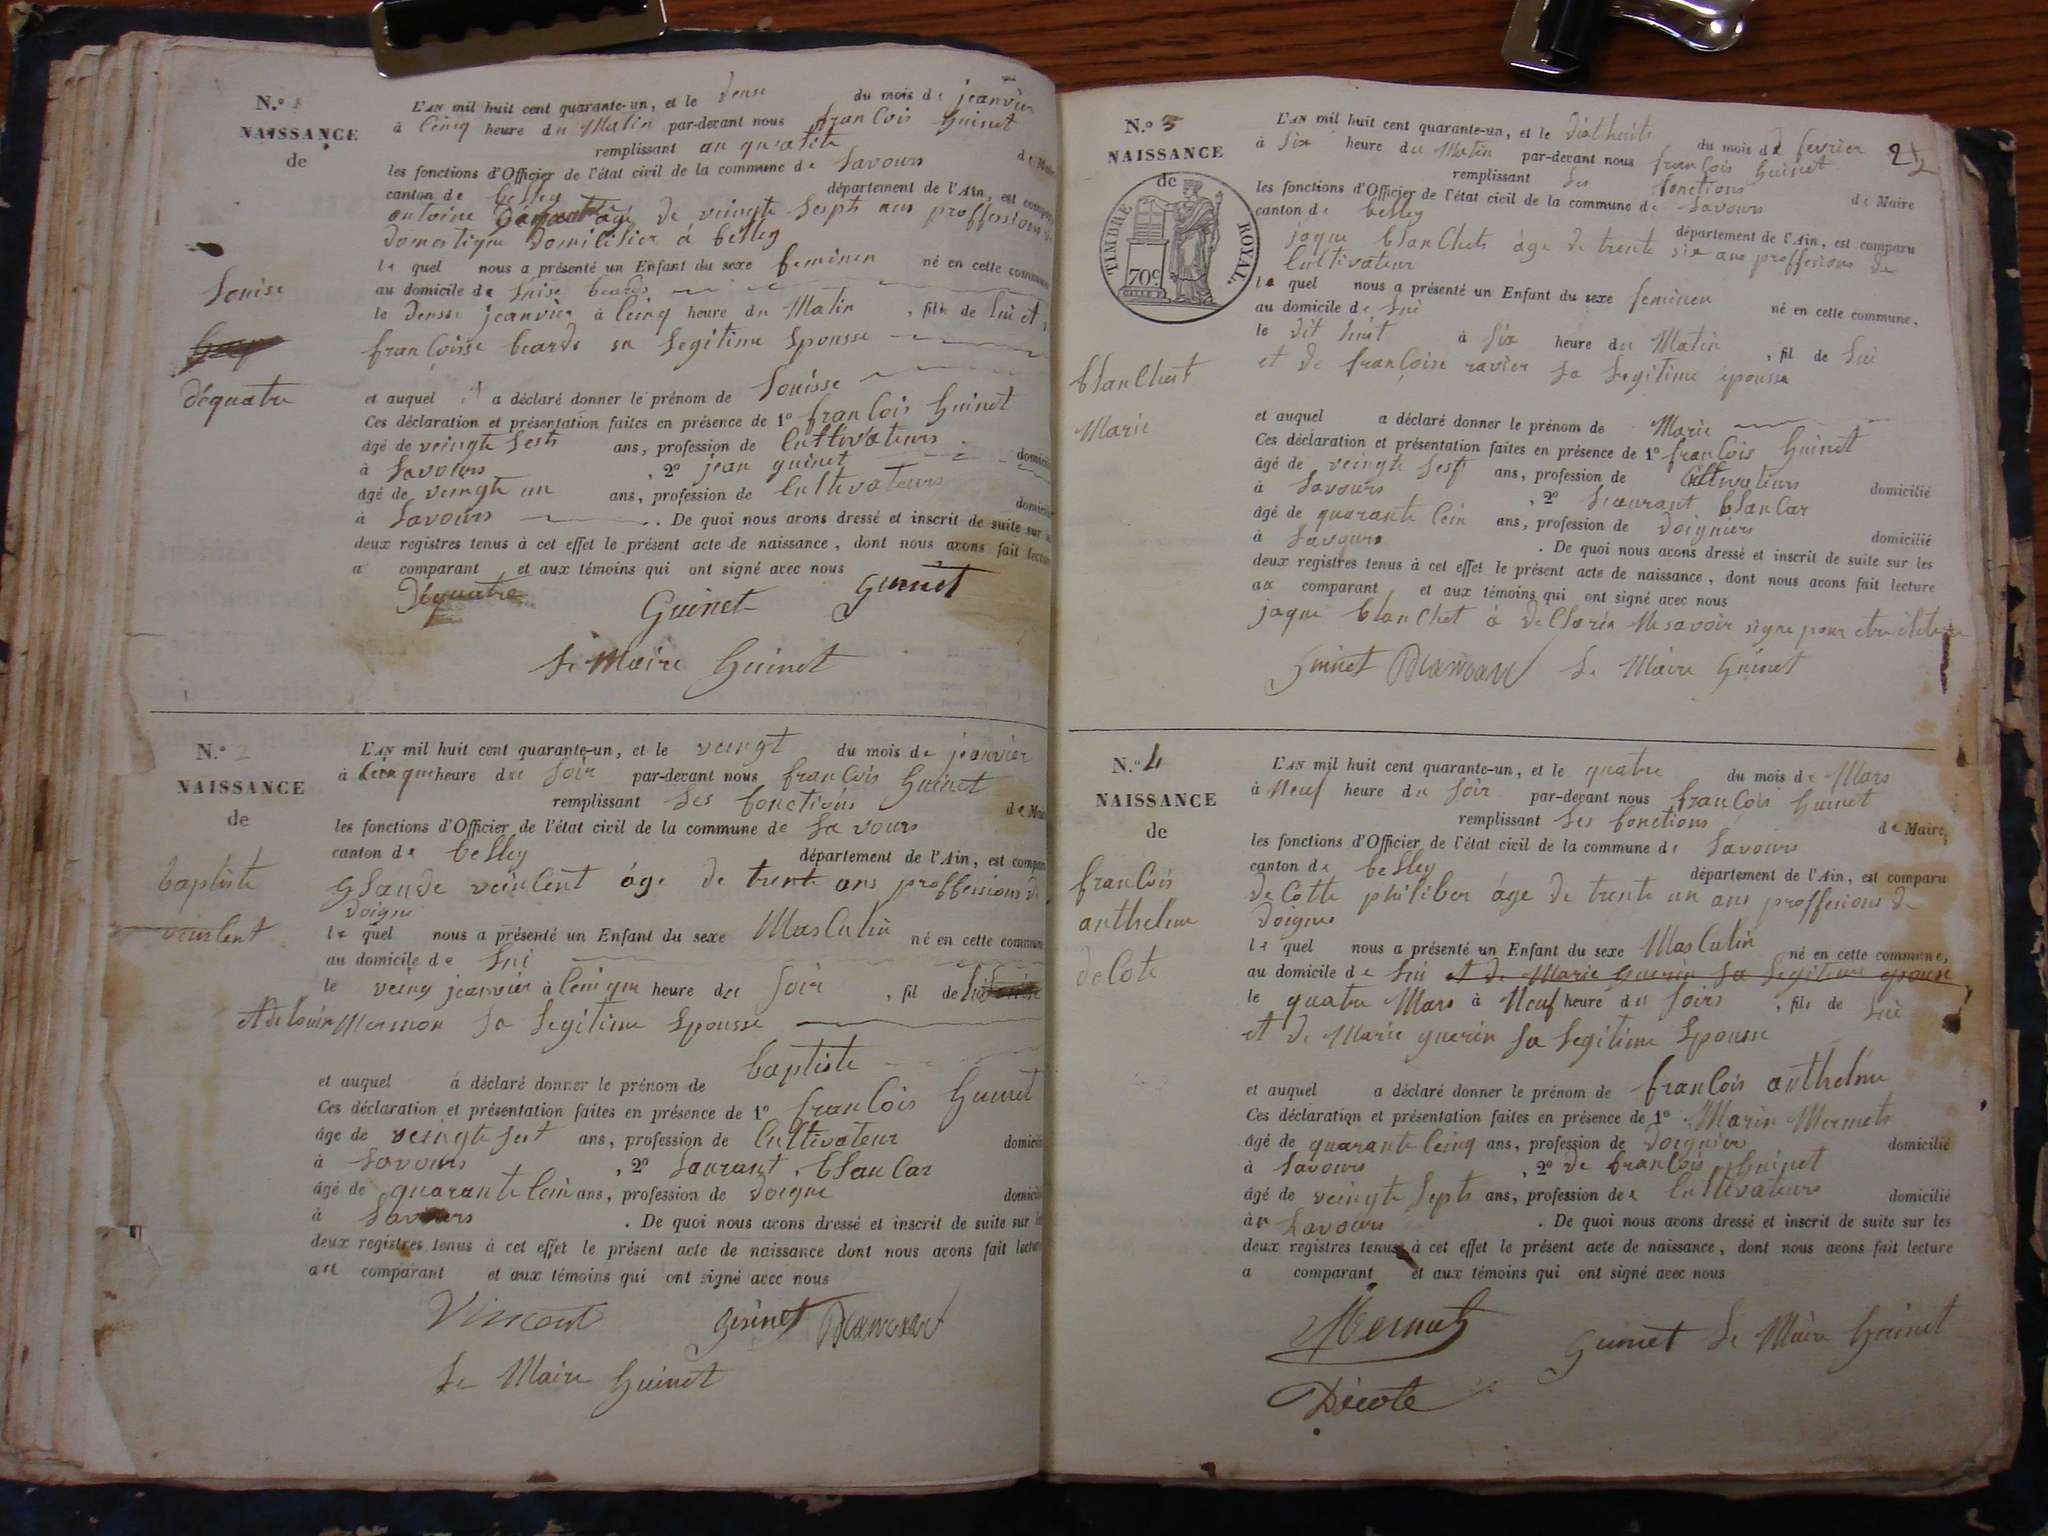 N.º
NAISSANCE
de
Louise
déquatre
L'AN mil huit cent quarante-un, et le dense du mois de jeanvier
à Cinq heure du Matin par-devant nous franCois Guinet
remplissant au qualité de Maire
les fonctions d'Officier de l'état civil de la commune de Savours
canton de belley département de l'Ain, est comparu
antoine âgé de veingte septs ans proffessions de
domestique domiCilier á belley
le quel nous a présenté un Enfant du sexe feminen né en cette commune
au domicile de
le densse jeanvier à Cinq heure du Matin , fille de lui et
françoisse bearde sa Legitime Epousse
et auquel il a déclaré donner le prénom de Louisse
Ces déclaration et présentation faites en présence de 1º franCois Guinet
âgé de veingte Sests ans, profession de Cultivateurs domicilié
à Savours , 2º jean guinet
âgé de veingte un ans, profession de Cultivateurs domicilié
à Savours . De quoi nous avons dressé et inscrit de suite sur les
deux registres tenus à cet effet le présent acte de naissance, dont nous avons fait lecture
a comparant et aux témoins qui ont signé avec nous
Déquatre Guinet guinet
Le Maire Guinet
N.º 2
NAISSANCE
de
baptiste
veinCent
L'AN mil huit cent quarante-un, et le veingt du mois de jeanvier
à Cinque heure du Soir par-devant nous franCois Guinet
remplissant Les fonctions de Maire
les fonctions d'Officier de l'état civil de la commune de Sa vours
canton de belley département de l'Ain, est comparu
Glaude veinCent áge de trente ans proffessions de
doigne
le quel nous a présenté un Enfant du sexe MasCulin né en cette commune
au domicile de Lui
le veing jeanvier à Cinque heure du Soir , fil de Lui
et de Louise Mermon Sa Legitime Epousse
et auquel á déclaré donner le prénom de baptiste
Ces déclaration et présentation faites en présence de 1º franCois Guinet
âge de veingte Sest ans, profession de Cultivateur domicilié
à Savours , 2º Laurant blanCar
âgé de quarante Cein ans, profession de doigne domicilié
à Savours . De quoi nous avons dressé et inscrit de suite sur les
deux registres tenus à cet effet le présent acte de naissance dont nous avons fait lecture
au comparant et aux témoins qui ont signé avec nous
Vincent guinet
Le Maire Guinet
2
N.º 3
NAISSANCE
de
TIMBRE ROYAL.
70 c.
blanChet
Marie
L'AN mil huit cent quarante-un, et le dixthuite du mois de fevrier
à Six heure du Matin par-devant nous franCois Guinet
remplissant Les fonctions de Maire
les fonctions d'Officier de l'état civil de la commune de Savours
canton de belley département de l'Ain, est comparu
jaque blanChets áge de trente six ans proffesions de
Cultivateur
le quel nous a présenté un Enfant du sexe feminen né en cette commune,
au domicile de Lui
le dit huit à Six heure du Matin , fil de Lui
et de françoise ravier Sa Legitime épousse
et auquel a déclaré donner le prénom de Marie
Ces déclaration et présentation faites en présence de 1º franCois Guinet
âgé de veingte Sest ans, profession de Cultivateurs domicilié
à Savours , 2º Laurant blanCar
âgé de quarante Cein ans, profession de doigniers domicilié
à Savours . De quoi nous avons dressé et inscrit de suite sur les
deux registres tenus à cet effet le présent acte de naissance, dont nous avons fait lecture
au comparant et aux témoins qui ont signé avec nous
jaque blanChet á deClarér Ne savoir signe pour
guinet Le Maire Guinet
N.º 4
NAISSANCE
de
franCois
anthelme
deCote
L'AN mil huit cent quarante-un, et le quatre du mois de Mars
à Neuf heure du Soir par-devant nous franCois Guinet
remplissant Les fonctions de Maire,
les fonctions d'Officier de l'état civil de la commune de Savours
canton de belley département de l'Ain, est comparu
de Cotte philiber áge de trente un ans proffesions de
doignes
le quel nous a présenté un Enfant du sexe MasCulin né en cette commune,
au domicile de Lui et de Marie Guerin Sa Legitime epouse
le quatre Mars à Neuf heure du Soirs , fils de Lui
et de Marie guerin Sa Legitime Epousse
et auquel a déclaré donner le prénom de franCois anthelme
Ces déclaration et présentation faites en présence de 1º Marin Mermets
âgé de quarante Ceinq ans, profession de doigniers domicilié
à Savours , 2º de franCois Guinet
âgé de veingte Septs ans, profession de Cultivateurs domicilié
à Savours . De quoi nous avons dressé et inscrit de suite sur les
deux registres tenus à cet effet le présent acte de naissance, dont nous avons fait lecture
a comparant et aux témoins qui ont signé avec nous
Mermet guinet Le Maire Guinet
Décote